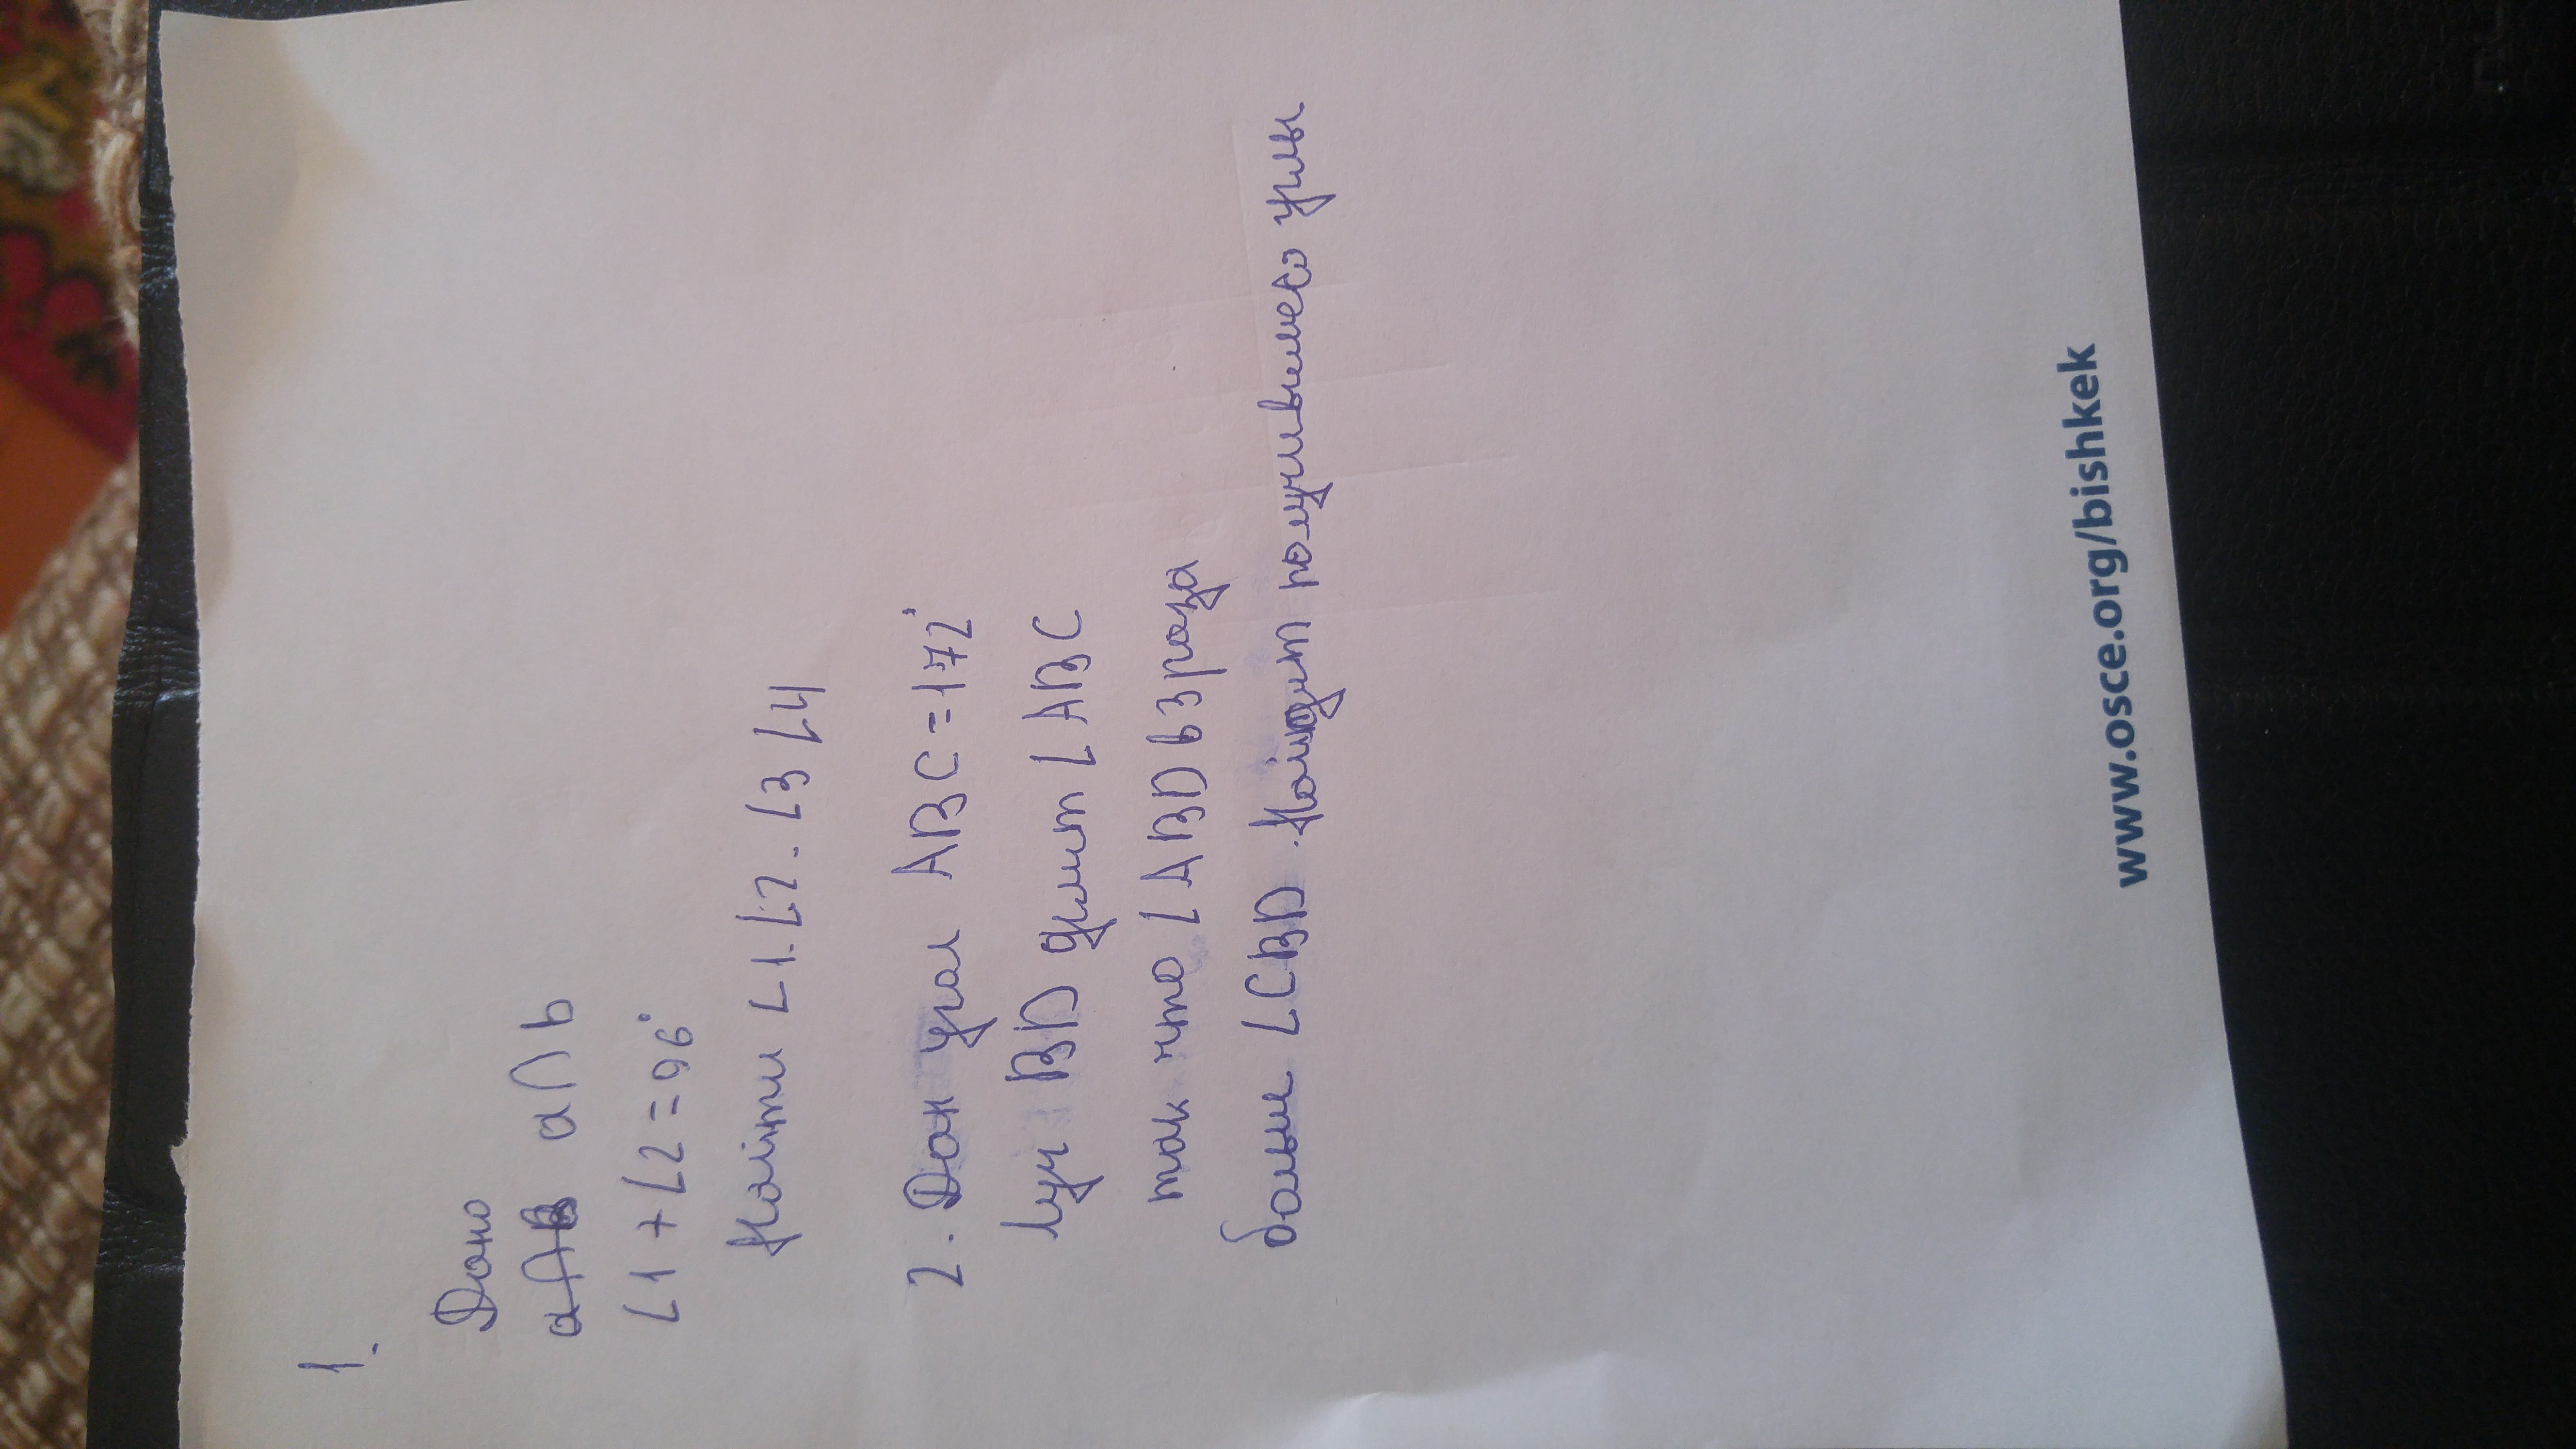 1.
Дано
a∩b
∠1+∠2=96°
Найти ∠1.∠2.∠3 ∠4
2. Дан угол ABC=172°
луч BD делит ∠ABC
так что ∠ABD в 3 раза
больш ∠CBD. Найидит получившиеся углы
www.osce.org/bishkek